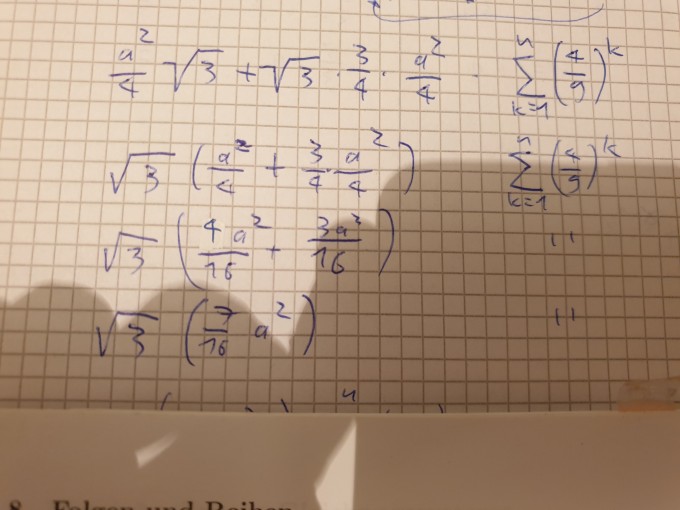 a²/4 √3 + √3 · 3/4 · a²/4 · ∑_{k=1}^{n} (4/9)^k
√3 (a²/4 + 3/4 · a²/4) ∑_{k=1}^{n} (4/9)^k
√3 (4a²/16 + 3a²/16) "
√3 (7/16 a²) "
8 Folgen und Reihen